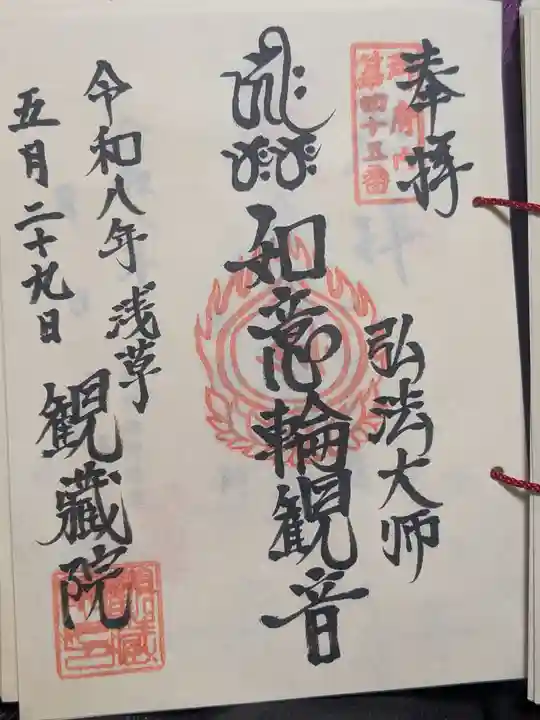 奉拝
弘法大师
第四十五番
如意輪観音
令和八年浅草
五月二十九日
観蔵院